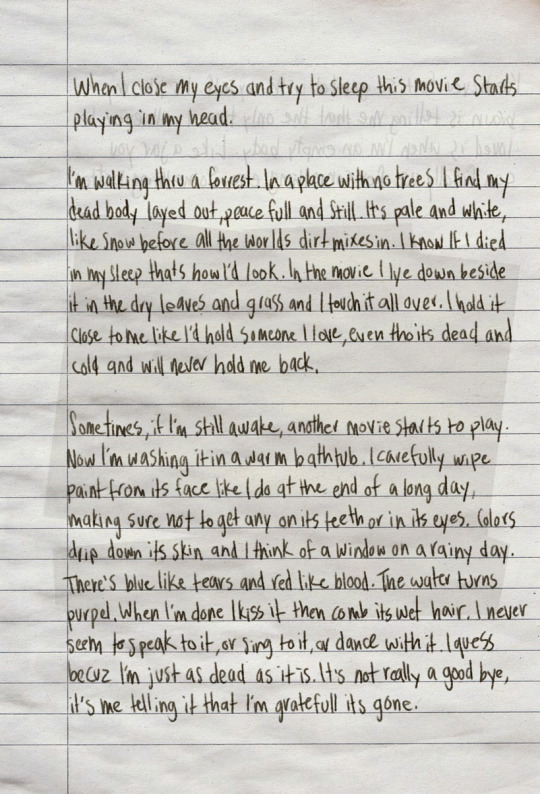 When I close my eyes and try to sleep this movie starts
playing in my head.
I'm walking thru a forrest. In a place with no trees I find my
dead body layed out, peace full and still. It's pale and white,
like snow before all the worlds dirt mixes in. I know If I died
in my sleep thats how I'd look. In the movie I lye down beside
it in the dry leaves and grass and I touch it all over. I hold it
close to me like I'd hold someone I love, even tho its dead and
cold and will never hold me back.
Sometimes, if I'm still awake, another movie starts to play.
Now I'm washing it in a warm bathtub. I carefully wipe
paint from its face like I do at the end of a long day,
making sure not to get any on its teeth or in its eyes. Colors
drip down its skin and I think of a window on a rainy day.
There's blue like tears and red like blood. The water turns
purpel. When I'm done I kiss it then comb its wet hair. I never
seem to speak to it, or sing to it, or dance with it. I guess
becuz I'm just as dead as it is. It's not really a good bye,
it's me telling it that I'm gratefull its gone.